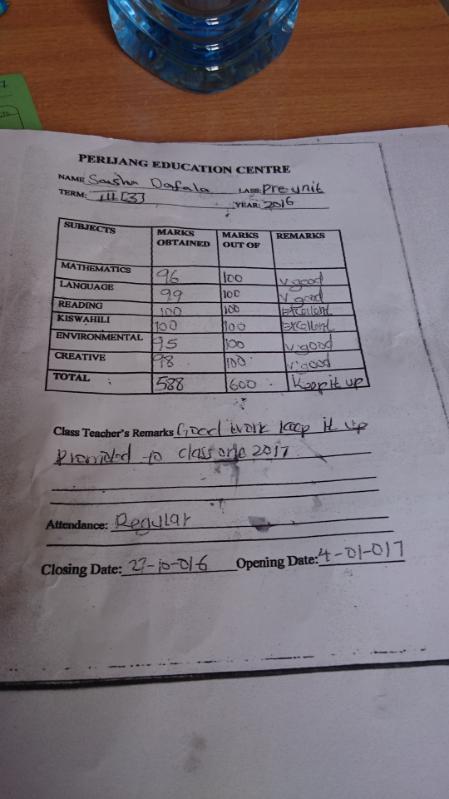 PERIJANG EDUCATION CENTRE
NAME Sasha Oafala LASS: Pre unit
TERM: III [3] YEAR: 2016
SUBJECTS MARKS OBTAINED MARKS OUT OF REMARKS
MATHEMATICS 96 100 V good
LANGUAGE 99 100 V good
READING 100 100 Excellent
KISWAHILI 100 100 Excellent
ENVIRONMENTAL 95 100 V good
CREATIVE 98 100 V good
TOTAL 588 600 Keep it up
Class Teacher's Remarks Good work keep it up
Promoted to class one 2017
Attendance: Regular
Closing Date: 27-10-016 Opening Date: 4-01-017